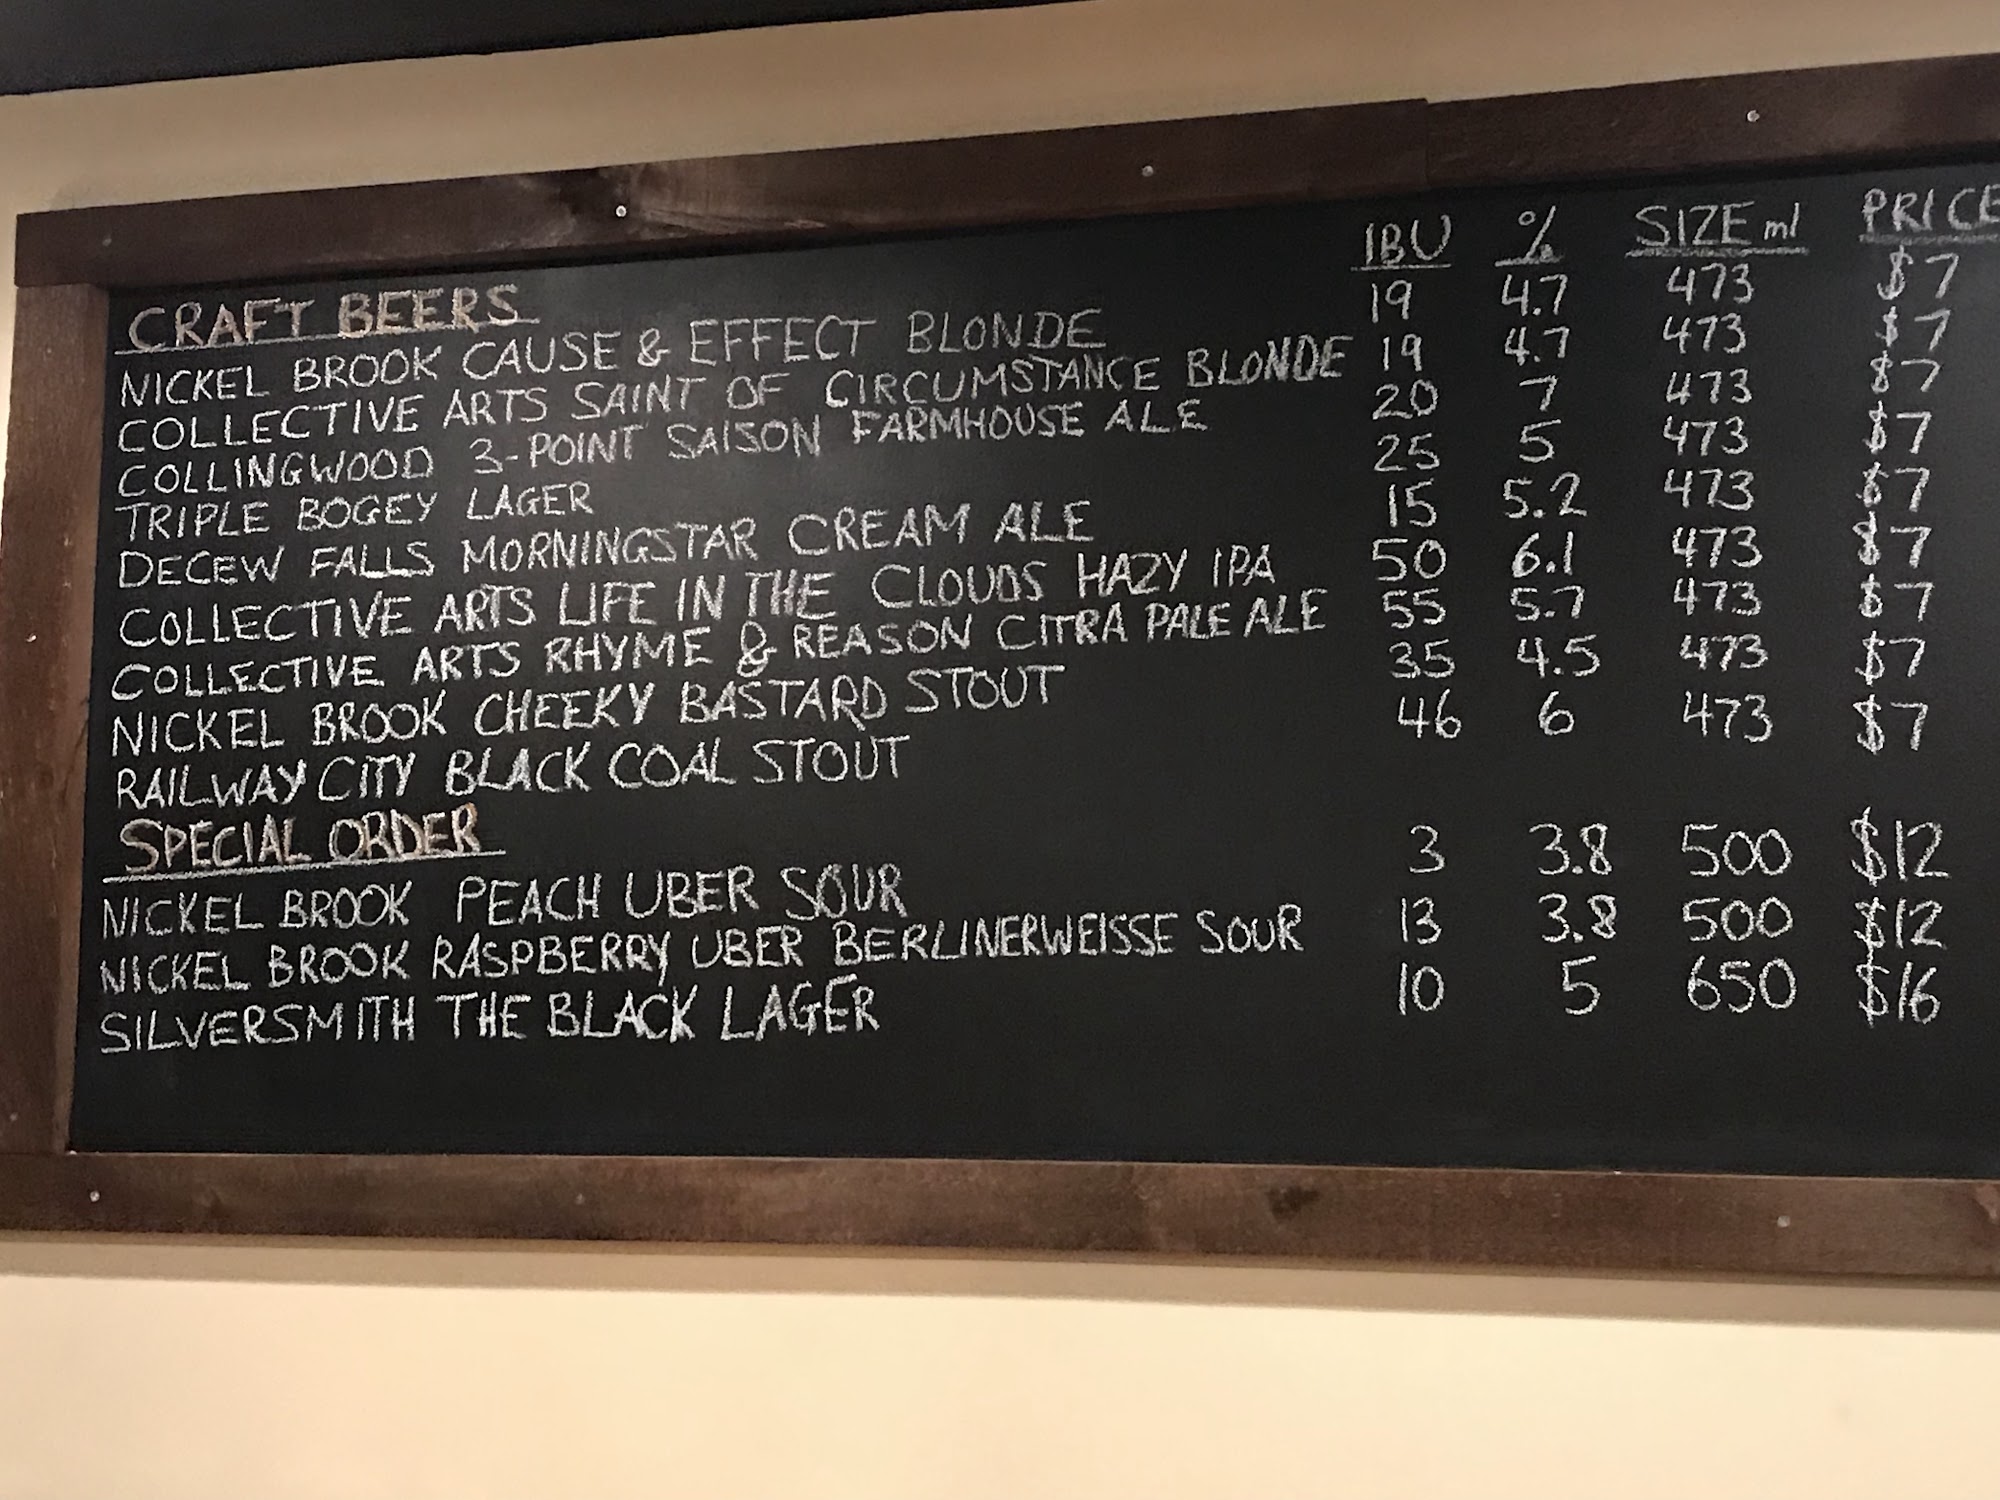 IBU % SIZE ml PRICE
CRAFT BEERS
NICKEL BROOK CAUSE & EFFECT BLONDE 19 4.7 473 $7
COLLECTIVE ARTS SAINT OF CIRCUMSTANCE BLONDE 19 4.7 473 $7
COLLINGWOOD 3-POINT SAISON FARMHOUSE ALE 20 7 473 $7
TRIPLE BOGEY LAGER 25 5 473 $7
DECEW FALLS MORNINGSTAR CREAM ALE 15 5.2 473 $7
COLLECTIVE ARTS LIFE IN THE CLOUDS HAZY IPA 50 6.1 473 $7
COLLECTIVE ARTS RHYME & REASON CITRA PALE ALE 55 5.7 473 $7
NICKEL BROOK CHEEKY BASTARD STOUT 35 4.5 473 $7
RAILWAY CITY BLACK COAL STOUT 46 6 473 $7
SPECIAL ORDER
NICKEL BROOK PEACH UBER SOUR 3 3.8 500 $12
NICKEL BROOK RASPBERRY UBER BERLINERWEISSE SOUR 13 3.8 500 $12
SILVERSMITH THE BLACK LAGER 10 5 650 $16